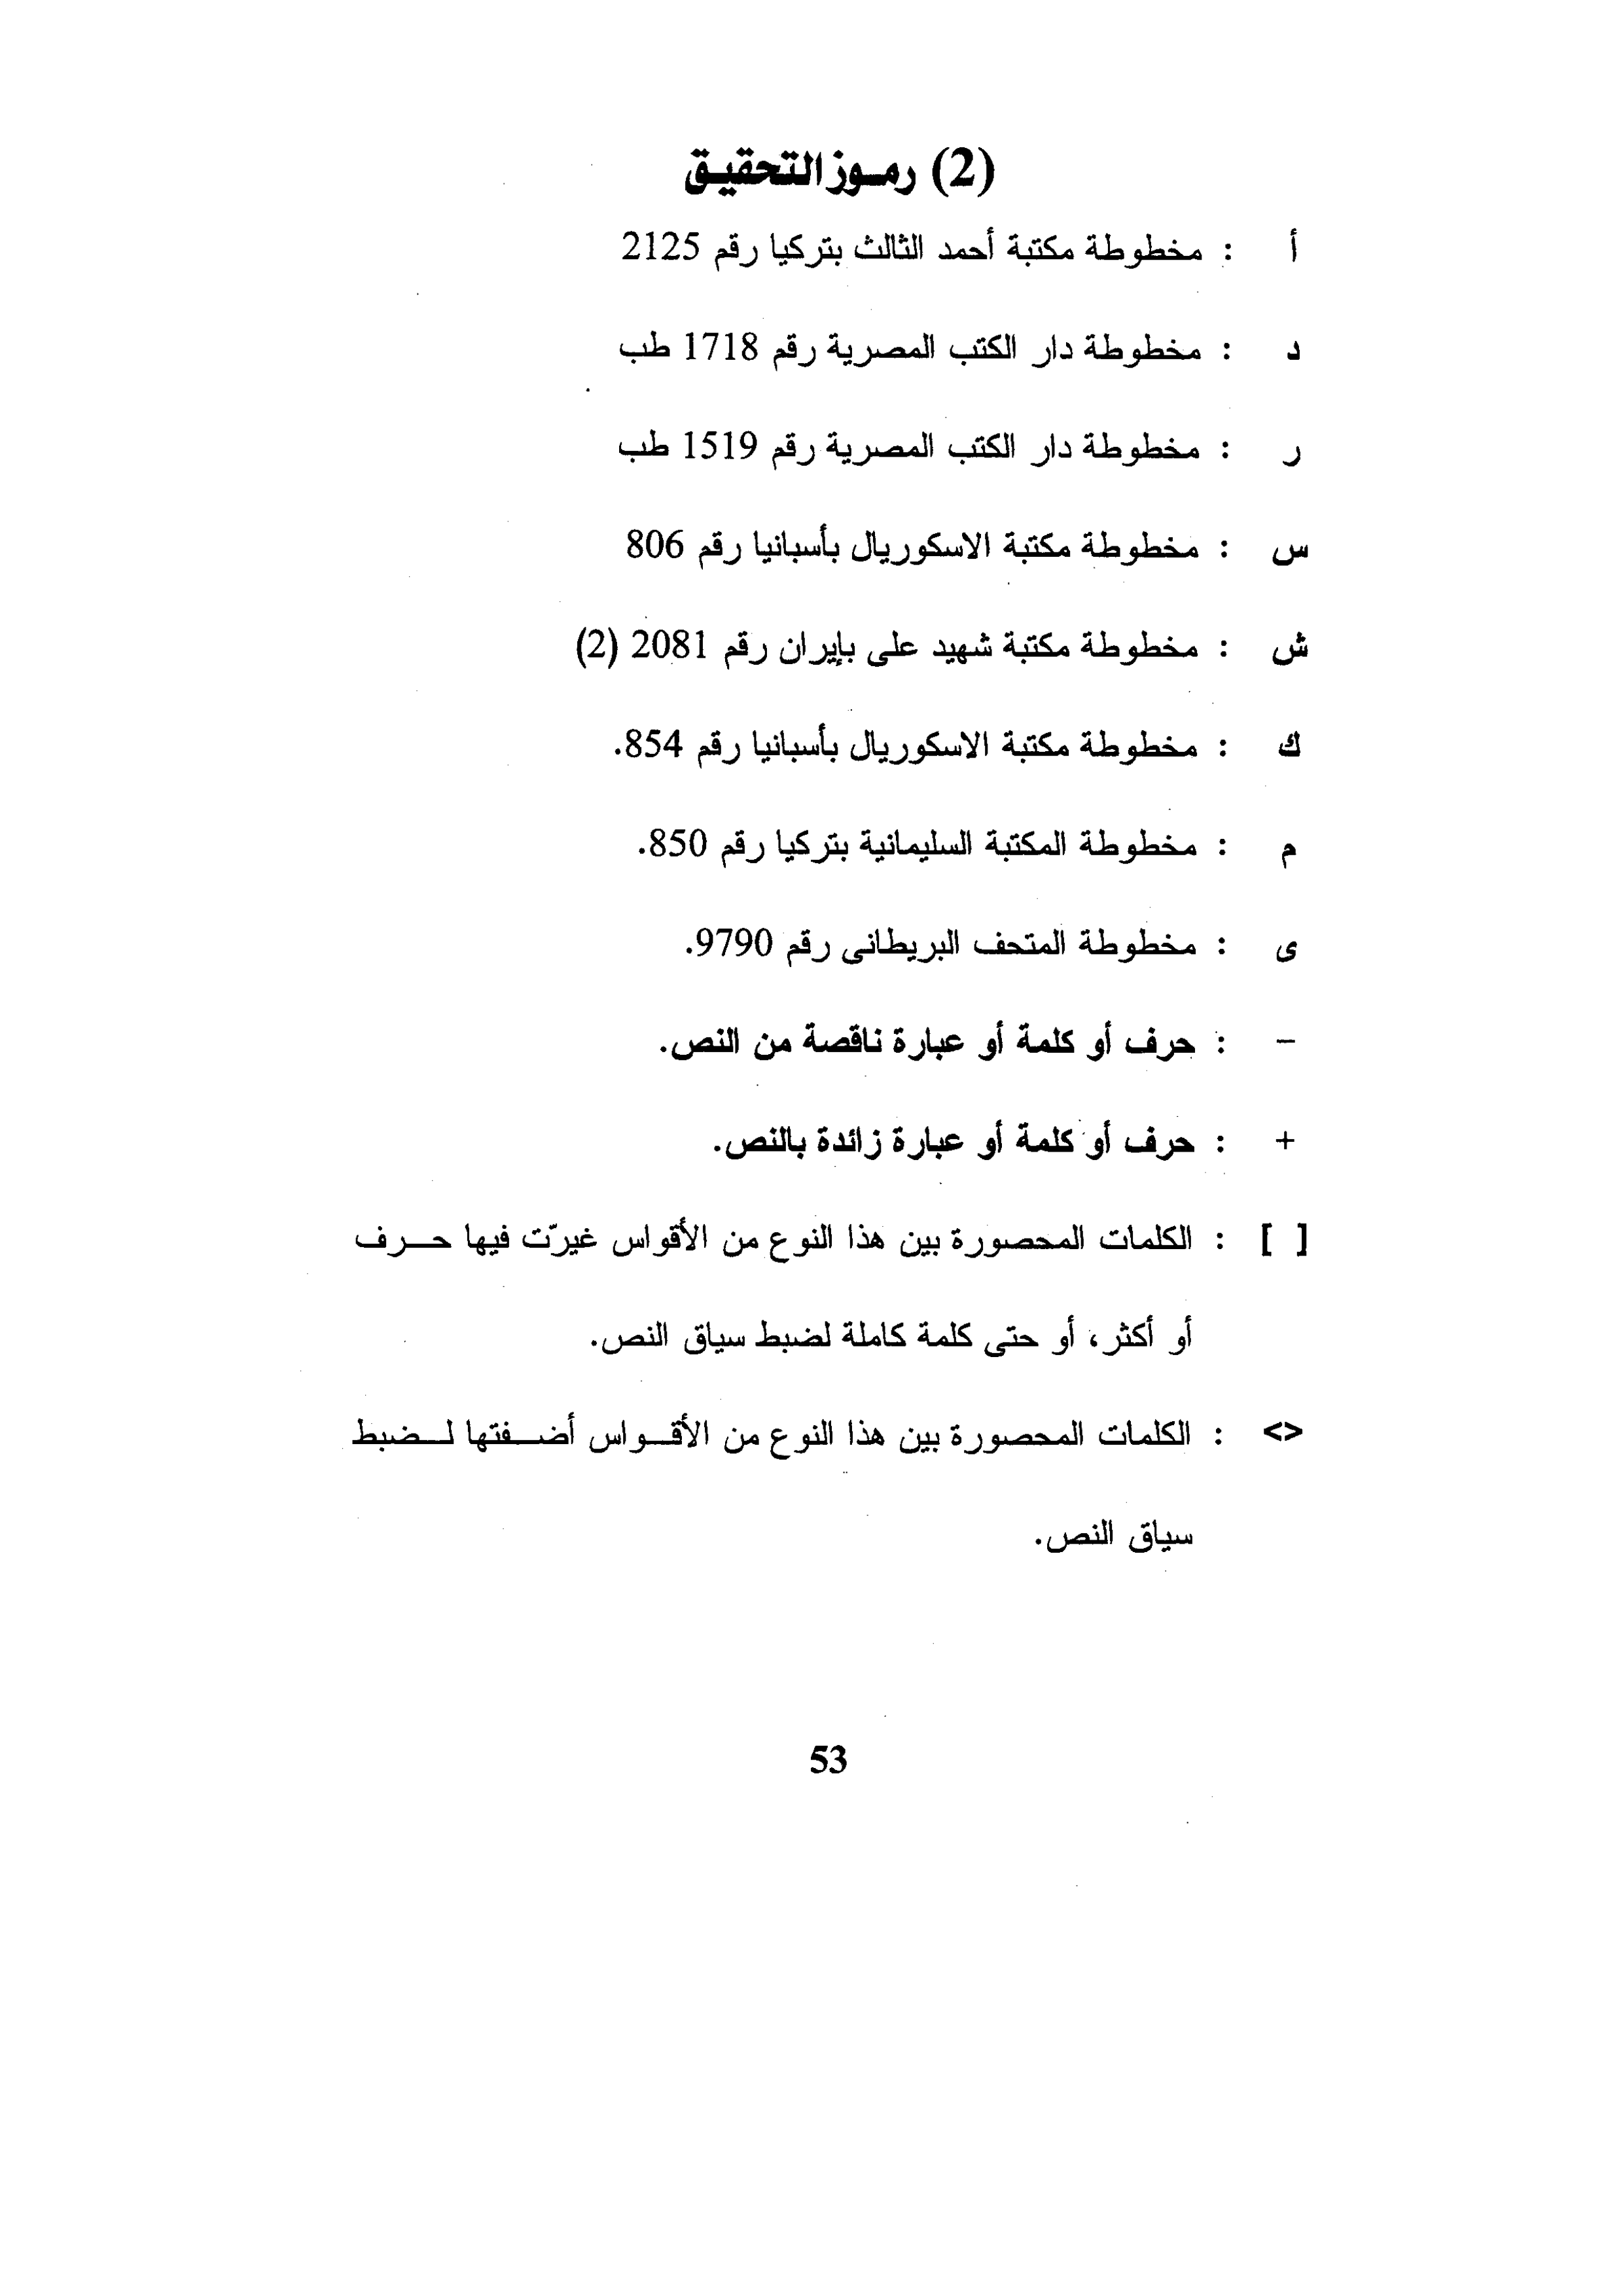 (2) رموز التحقيق
أ : مخطوطة مكتبة أحمد الثالث بتركيا رقم 2125
د : مخطوطة دار الكتب المصرية رقم 1718 طب
ر : مخطوطة دار الكتب المصرية رقم 1519 طب
س : مخطوطة مكتبة الاسكوريال بأسبانيا رقم 806
ش : مخطوطة مكتبة شهيد على بإيران رقم 2081 (2)
ك : مخطوطة مكتبة الاسكوريال بأسبانيا رقم 854.
م : مخطوطة المكتبة السليمانية بتركيا رقم 850.
ى : مخطوطة المتحف البريطانى رقم 9790.
– : حرف أو كلمة أو عبارة ناقصة من النص.
+ : حرف أو كلمة أو عبارة زائدة بالنص.
[ ] : الكلمات المحصورة بين هذا النوع من الأقواس غيرّت فيها حرف
أو أكثر، أو حتى كلمة كاملة لضبط سياق النص.
<> : الكلمات المحصورة بين هذا النوع من الأقواس أضفتها لضبط
سياق النص.
53